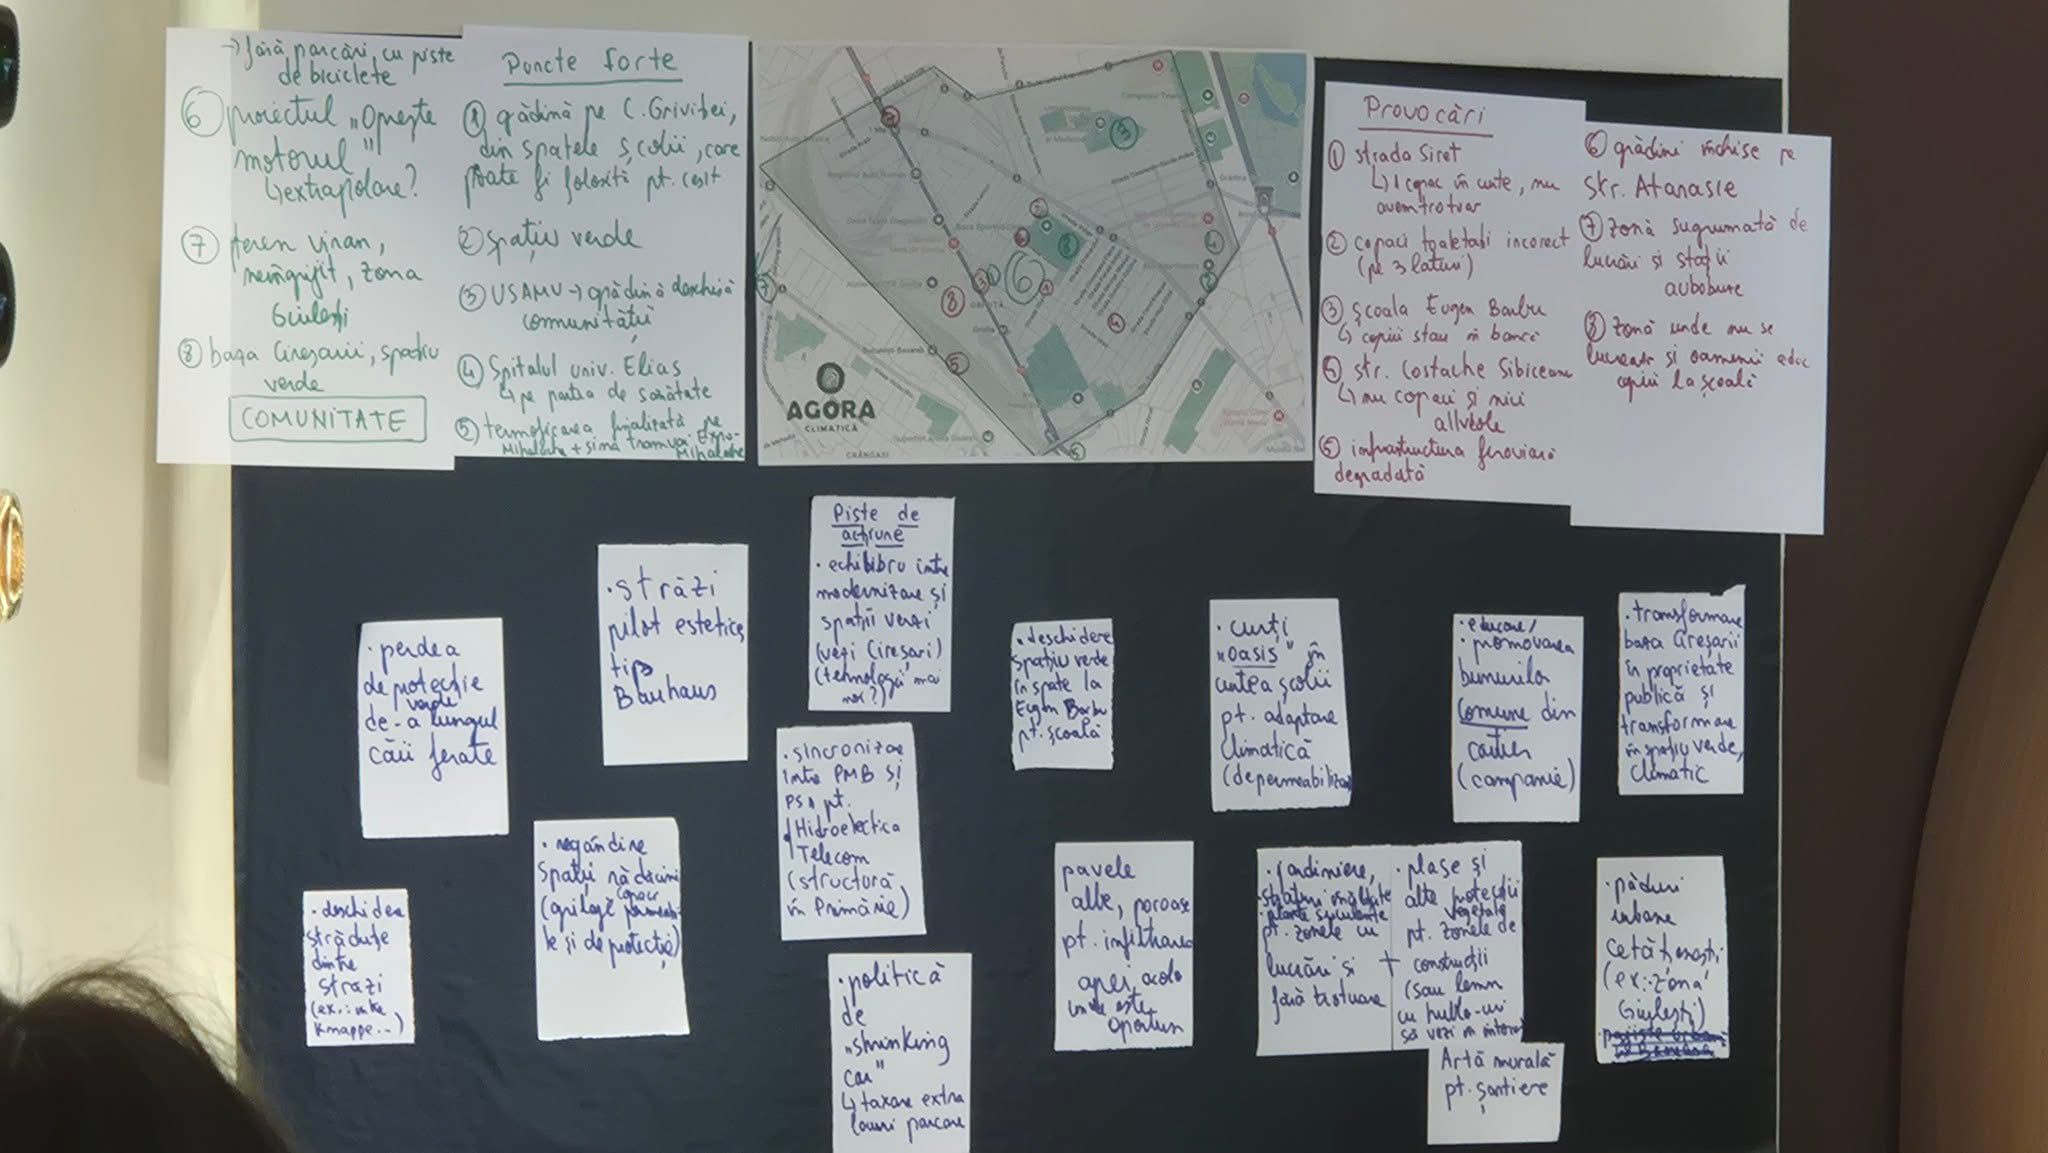 → fără parcări, cu piste
de biciclete
⑥ proiectul „Oprește
motorul"
↳ extrapolare?
⑦ teren viran,
neîngrijit, zona
Giulești
⑧ baza Cireșarii, spațiu
verde
COMUNITATE
Puncte forte
① grădină pe C. Griviței,
din spatele școlii, care
poate fi folosită pt. cosit
② spațiu verde
③ USAMV → grădină deschisă
comunității
④ Spitalul univ. Elias
↳ pe partea de sănătate
⑤ termoficarea finalizată pe
Mihalache + șina tramvai Expo-
Mihalache
AGORA
CLIMATICĂ
CRÂNGAȘI
Provocări
① strada Siret
↳ 1 copac în curte, nu
avem trotuar
② copaci toaletați incorect
(pe 3 laturi)
③ școala Eugen Barbu
↳ copiii stau în bănci
④ str. Costache Sibiceanu
↳ nu copaci și nici
alveole
⑤ infrastructura feroviară
degradată
⑥ grădini închise pe
str. Atanasie
⑦ zonă sugrumată de
lucrări și stații
autobuze
⑧ zonă unde nu se
lucrează și oamenii aduc
copiii la școală
Piste de
acțiune
• echilibru între
modernizare și
spații verzi
(vezi Cireșari)
(tehnologii mai
noi?)
• străzi
pilot estetice,
tip
Bauhaus
• perdea
de protecție
verde
de-a lungul
căii ferate
• deschidere
spațiu verde
în spate la
Eugen Barbu
pt. școală
• curți
„Oasis" în
curtea școlii
pt. adaptare
climatică
(depermeabilizare
• educare/
• promovarea
bunurilor
comune din
cartier
(campanie)
• transformare
baza Cireșarii
în proprietate
publică și
transformare
în spațiu verde,
climatic
• sincronizare
între PMB și
PS1 pt.
Hidroelectica
Telecom
(structură
în Primărie)
• regândire
spații rădăcini
copaci
(grilaje permeabi-
le și de protecție)
• deschidere
străduțe
dintre
străzi
(ex.: între
Knappe...)
• politică
de
„shrinking
car"
↳ taxare extra
locuri parcare
pavele
albe, poroase
pt. infiltrarea
apei, acolo
unde este
oportun
• jardiniere,
straturi înălțate
• plante suculente
pt. zonele cu
lucrări și
fără trotuare
+
• plase și
alte protecții
vegetale
pt. zonele de
construcții
(sau lemn
cu hublo-uri
să vezi în interior
Artă murală
pt. șantiere
• păduri
urbane
cetățenești
(ex.: zona
Giulești)